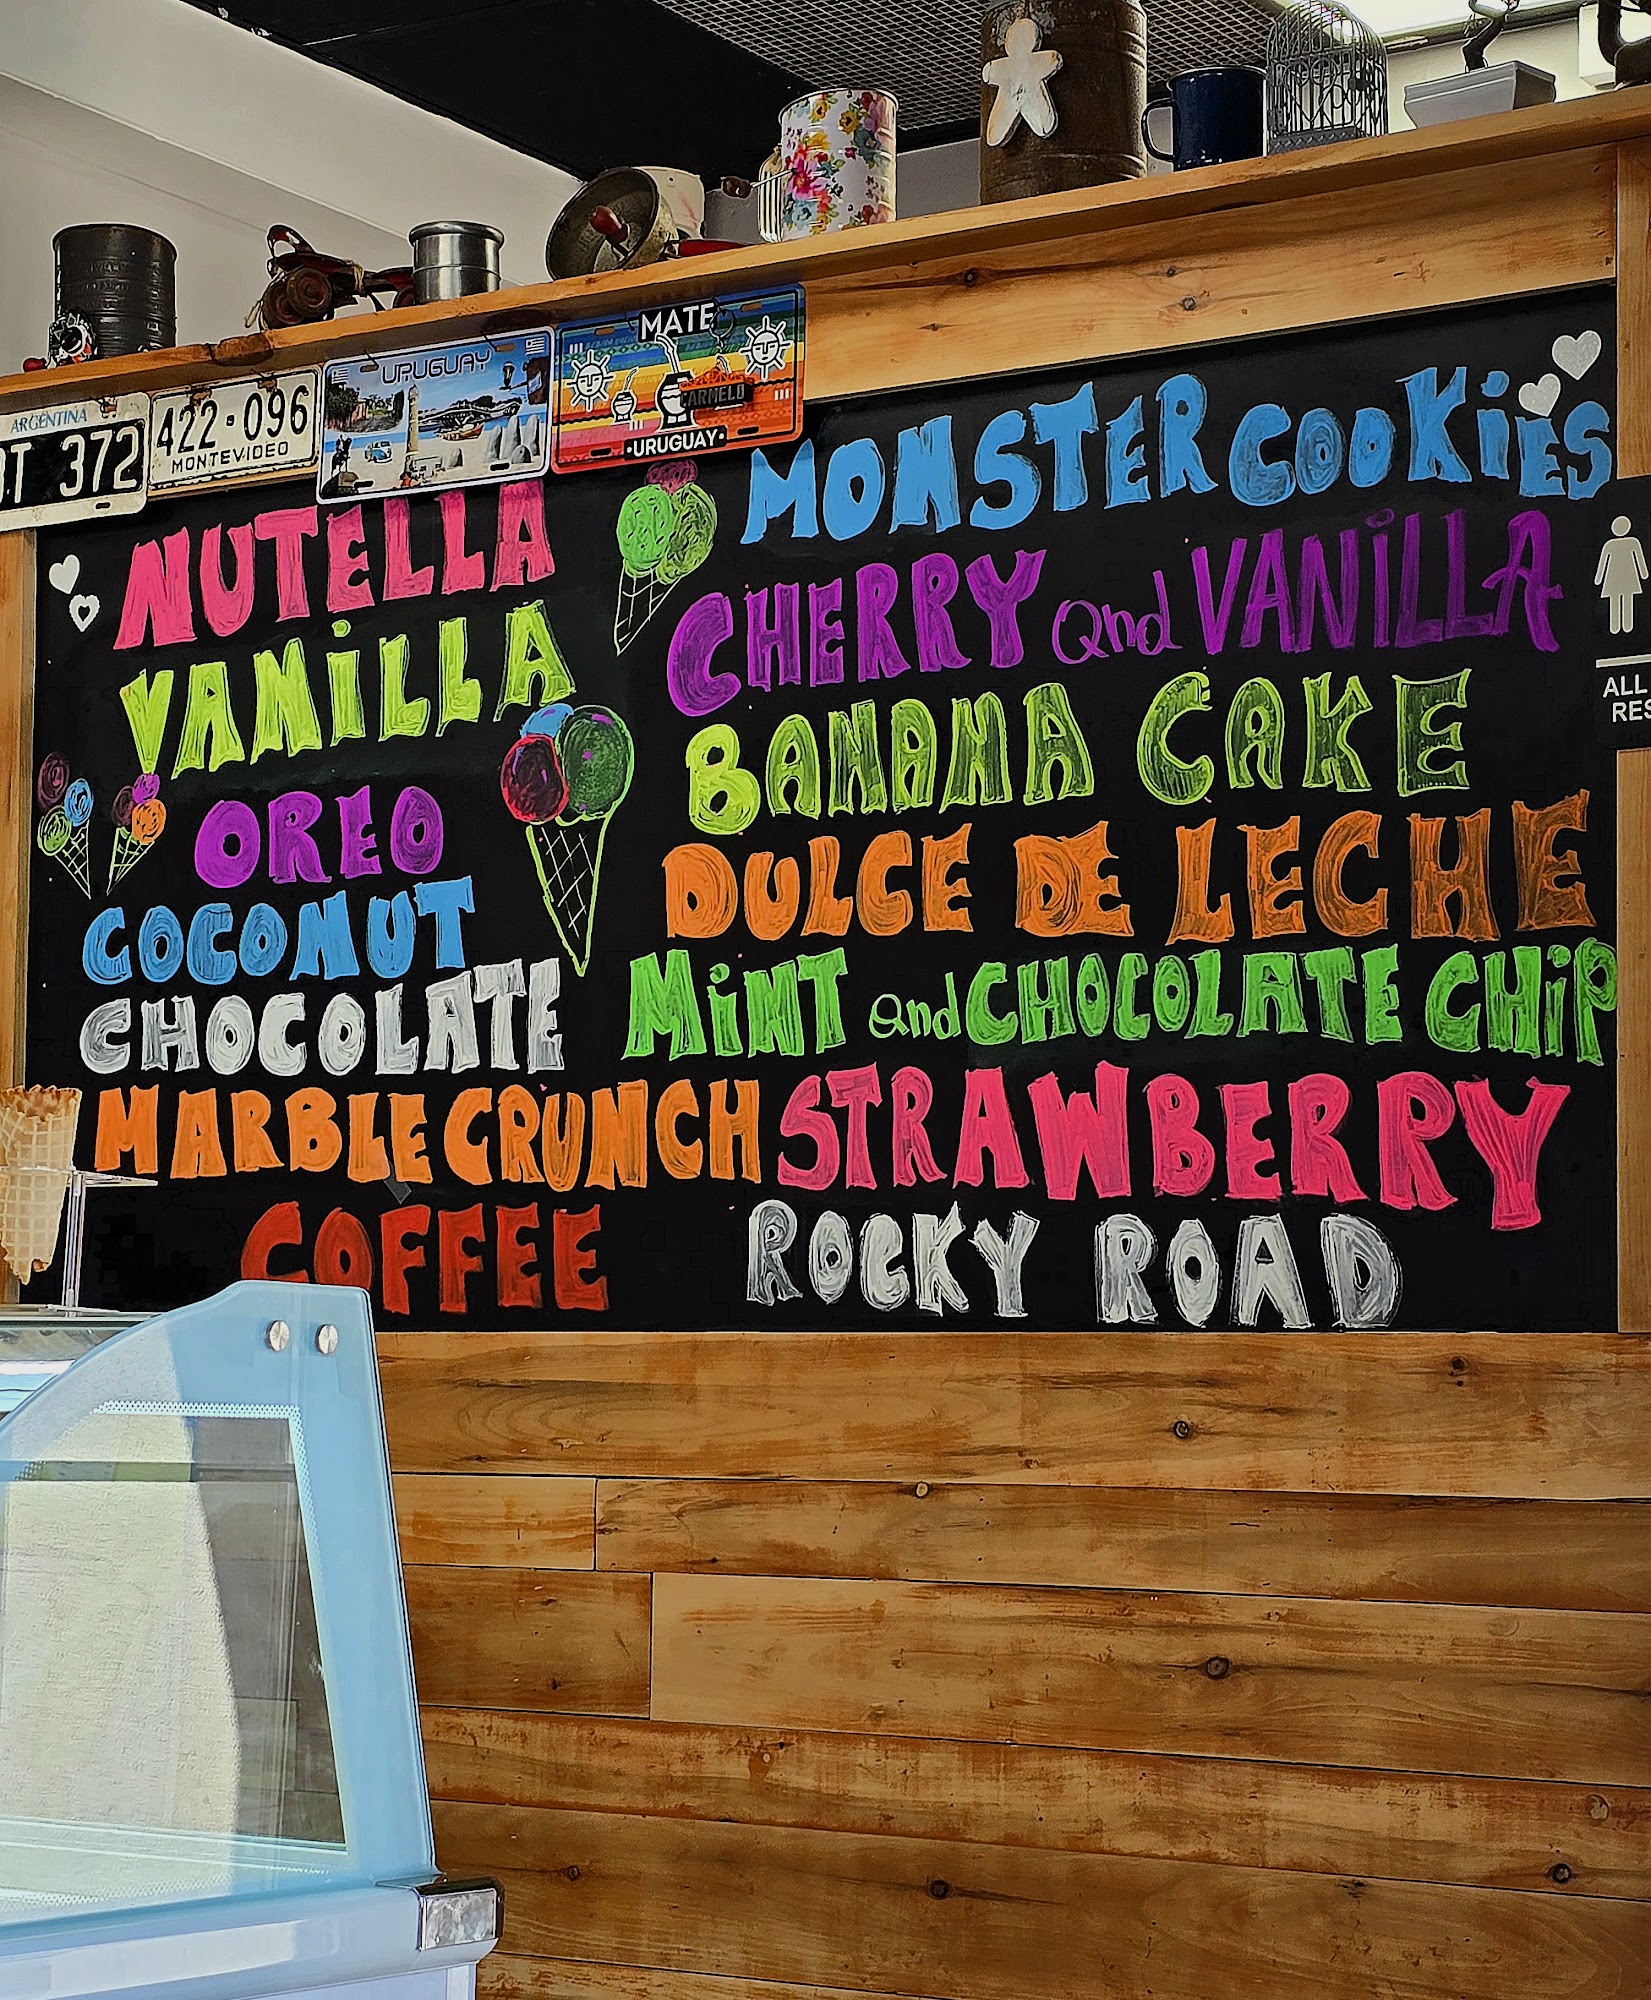 ARGENTINA
T 372
422-096
MONTEVIDEO
URUGUAY
MATE
CARMELO
·URUGUAY·
NUTELLA
VANiLLA
OREO
COCONUT
CHOCOLATE
MARBLE CRUNCH
COFFEE
MONSTER COOKiES
CHERRY and VANiLLA
BANANA CAKE
DULCE DE LECHE
MiNT and CHOCOLATE CHiP
STRAWBERRY
ROCKY ROAD
ALL